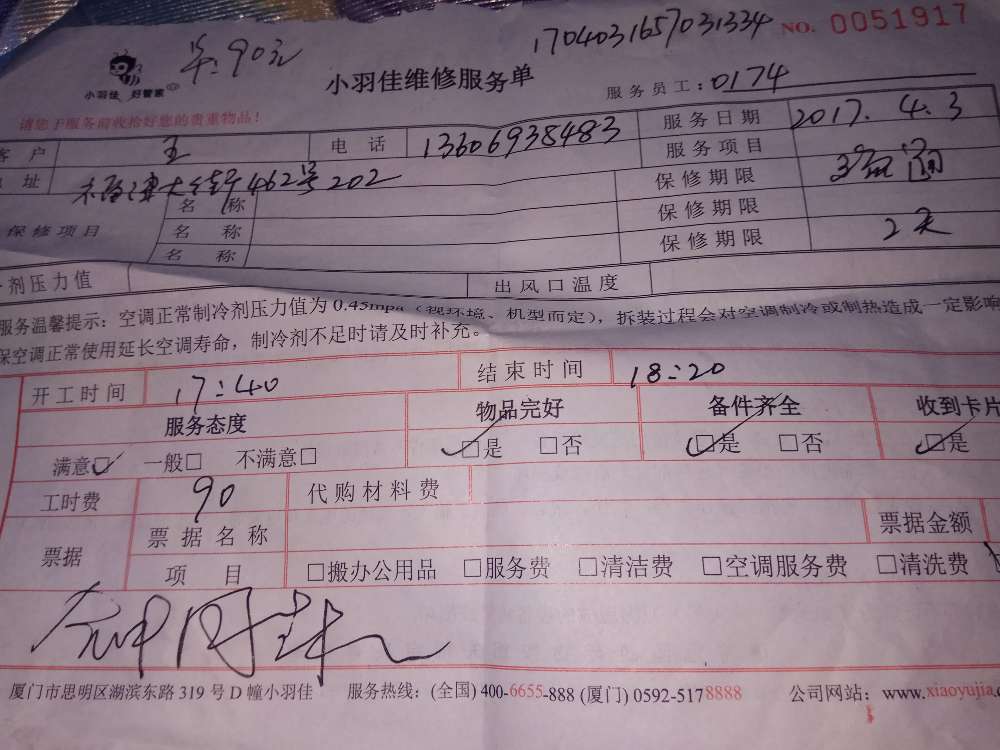 单:90元
1704031657031334 NO. 0051917
小羽佳 好管家
小羽佳维修服务单 服务员工:0174
请您于服务前收拾好您的贵重物品!
客户 王 电话 13606938483 服务日期 2017.4.3
地址 462号202 服务项目
保修项目 名称 保修期限
名称 保修期限
名称 保修期限 2天
剂压力值 出风口温度
服务温馨提示:空调正常制冷剂压力值为0.45mpa(视环境、机型而定),拆装过程会对空调制冷或制热造成一定影响
保空调正常使用延长空调寿命,制冷剂不足时请及时补充。
开工时间 17:40 结束时间 18:20
服务态度 物品完好 备件齐全 收到卡片
满意☑ 一般□ 不满意□ ☑是 □否 ☑是 □否 ☑是
工时费 90 代购材料费
票据 票据名称 票据金额
项目 □搬办公用品 □服务费 □清洁费 □空调服务费 □清洗费
厦门市思明区湖滨东路319号D幢小羽佳 服务热线:(全国)400-6655-888 (厦门)0592-5178888 公司网站:www.xiaoyujia.c